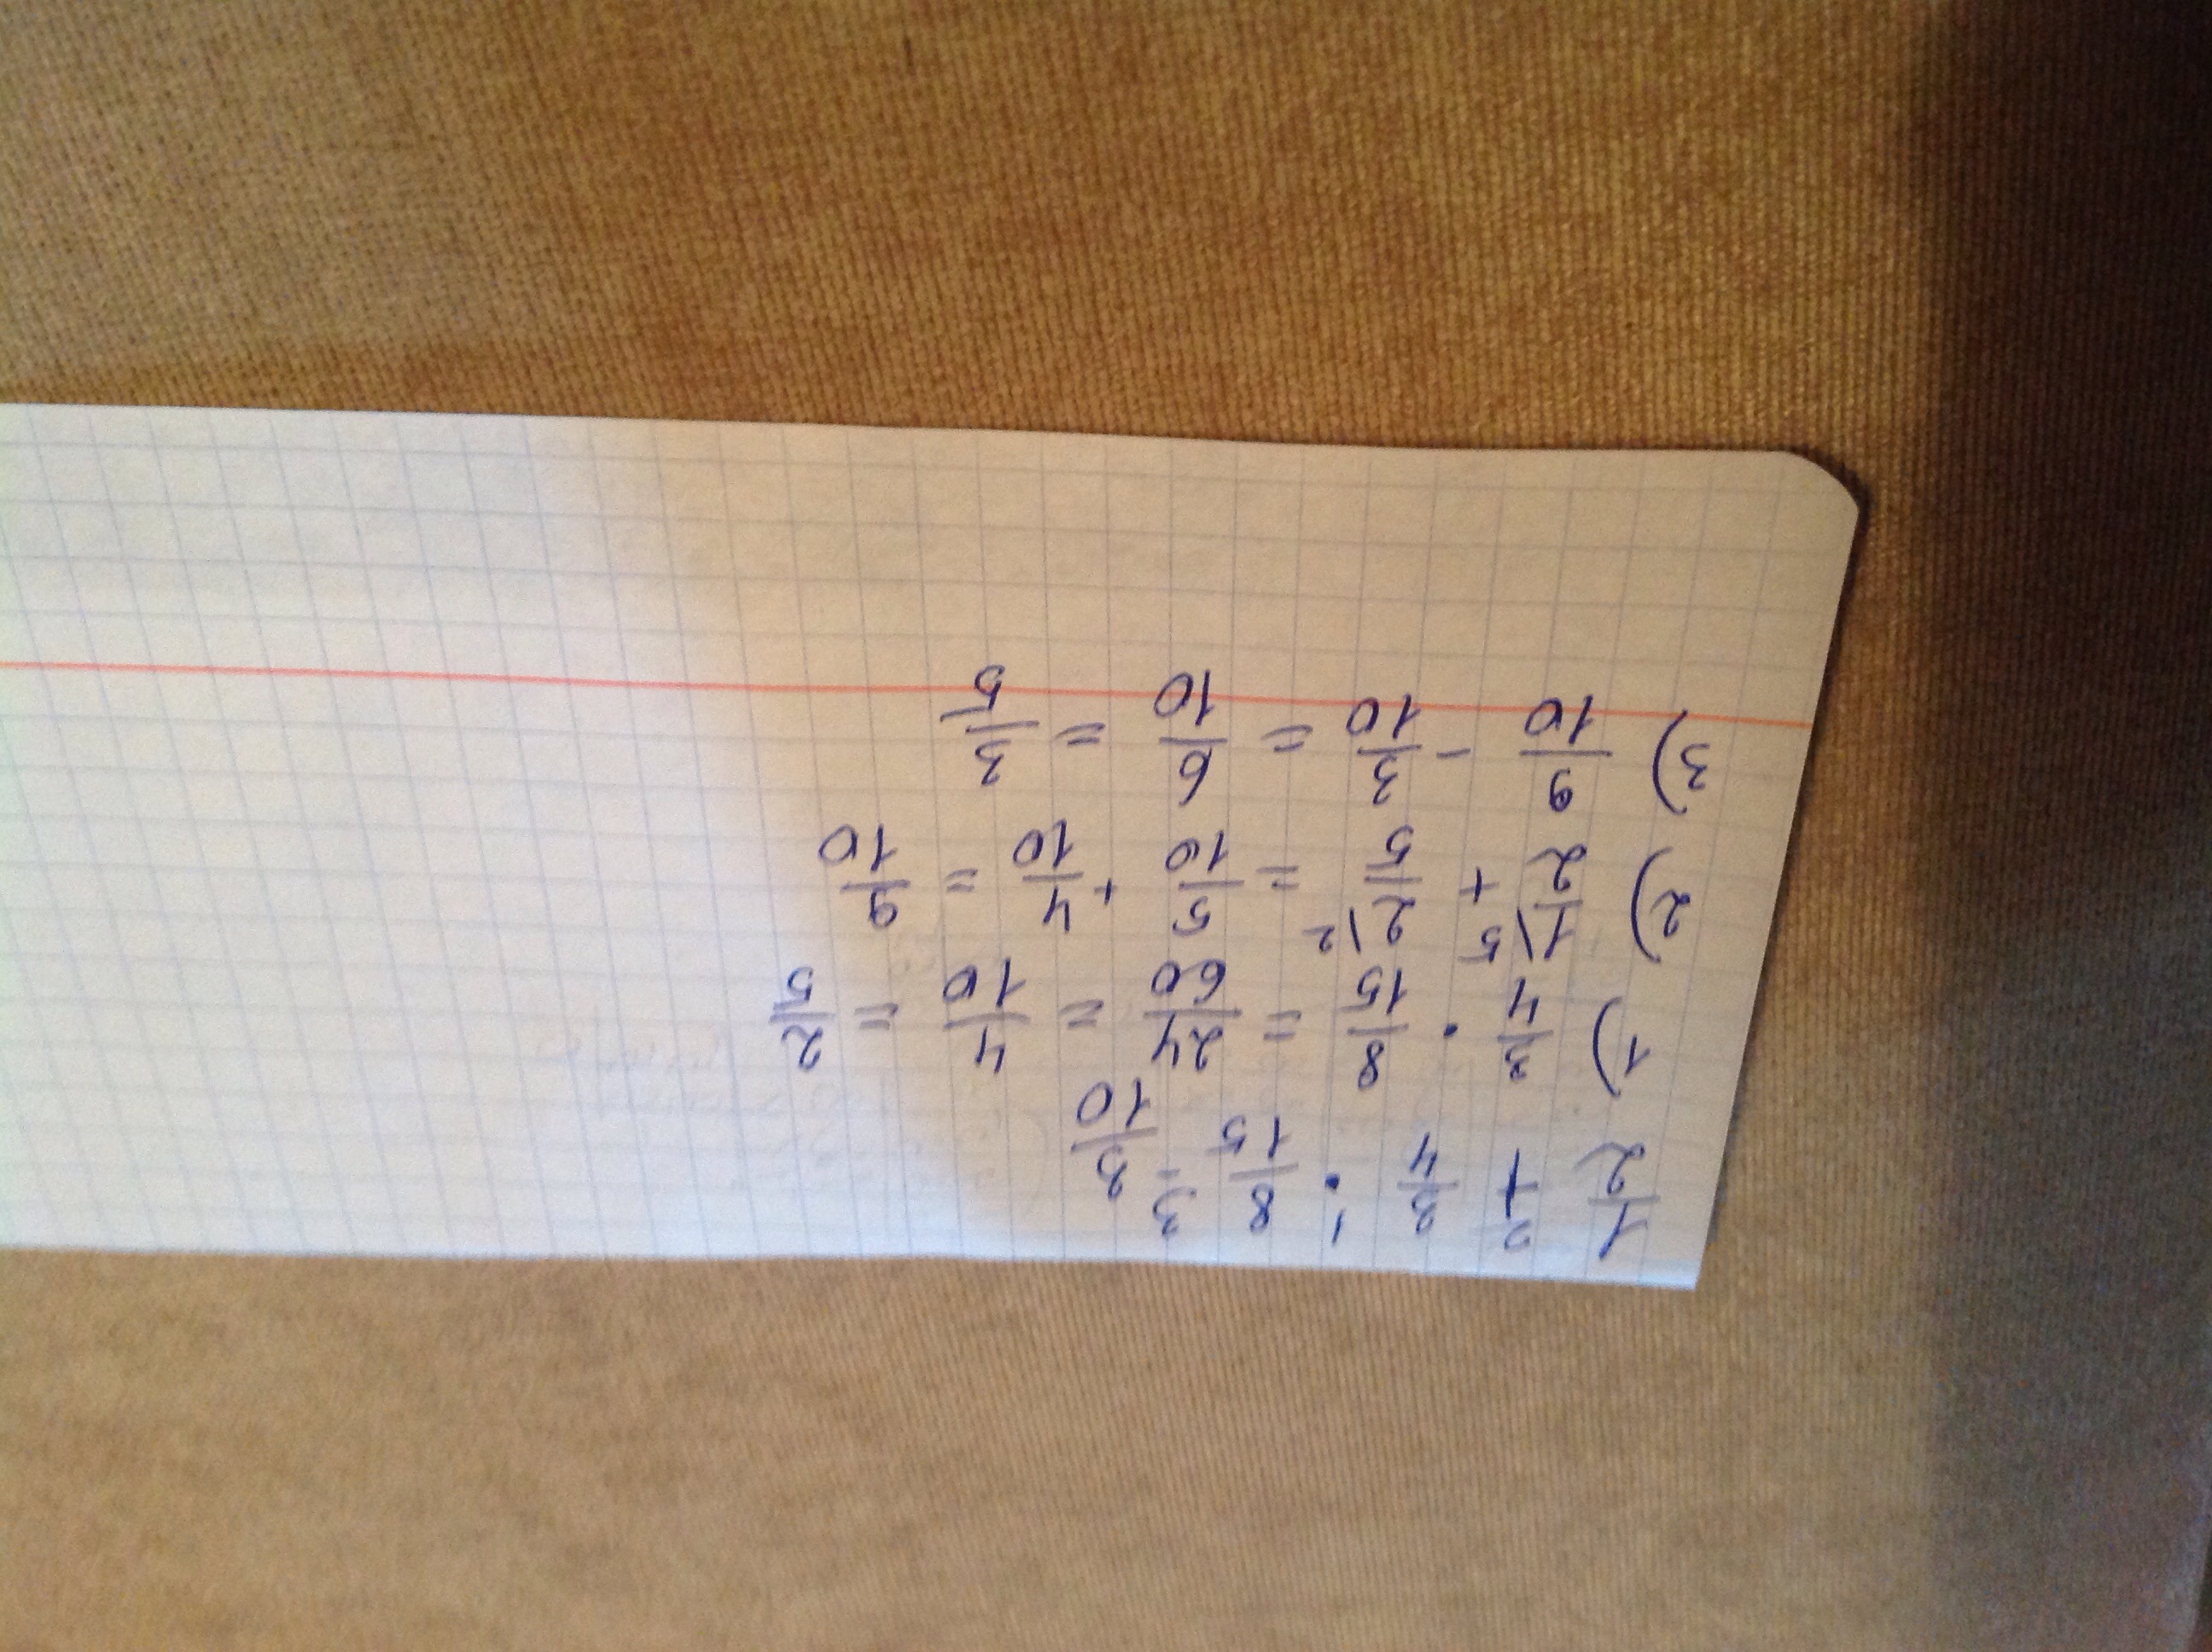 1/2 +² 3/4 ·¹ 8/15 -³ 3/10
1) 3/4 · 8/15 = 24/60 = 4/10 = 2/5
2) 1\5/2 + 2\2/5 = 5/10 + 4/10 = 9/10
3) 9/10 - 3/10 = 6/10 = 3/5